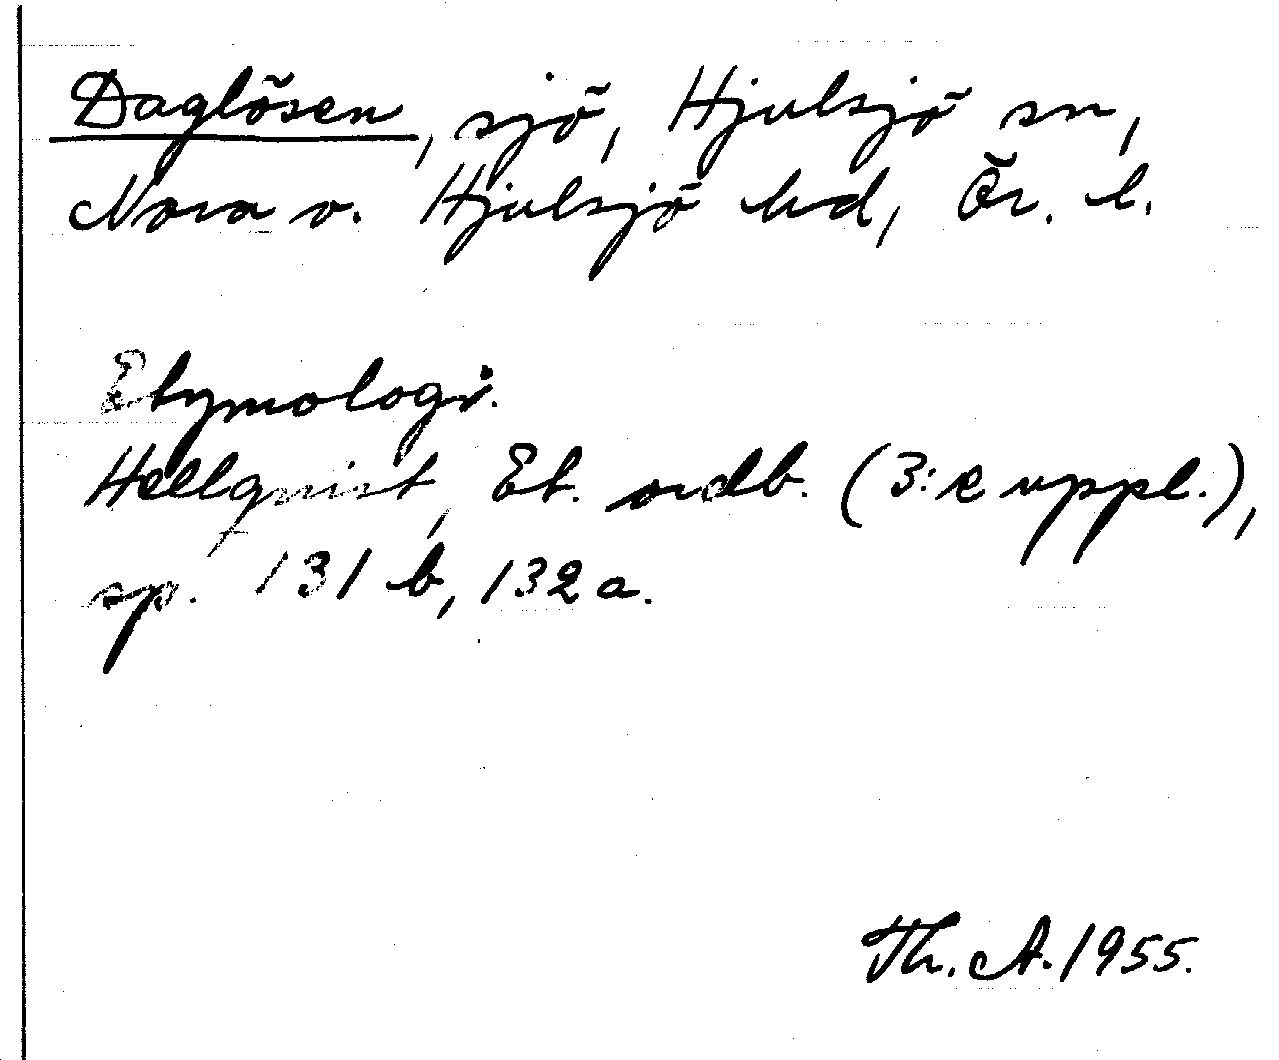 Daglösen, sjö, Hjulsjö sn,
Nora o. Hjulsjö hd, Ör. l.
Etymologi.
Hellqvist, Et. ordb. (3:e uppl.),
sp. 131 b, 132 a.
Th. A. 1955.